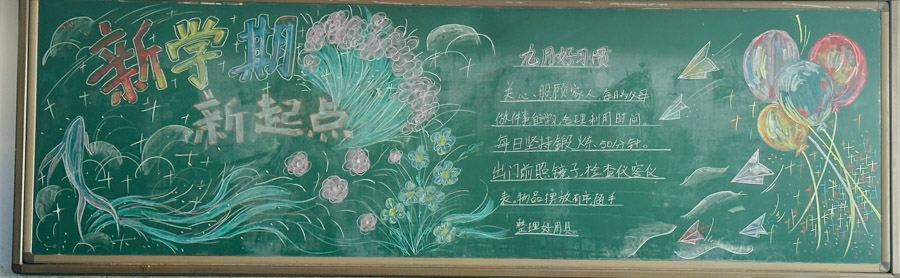 新学期
新起点
九月好习惯
关心、照顾家人,每日为父母
做件事能的,合理利用时间
每日坚持锻炼,30分钟。
出门前照镜子,检查仪容仪
表。物品摆放有序随手
整理好用具